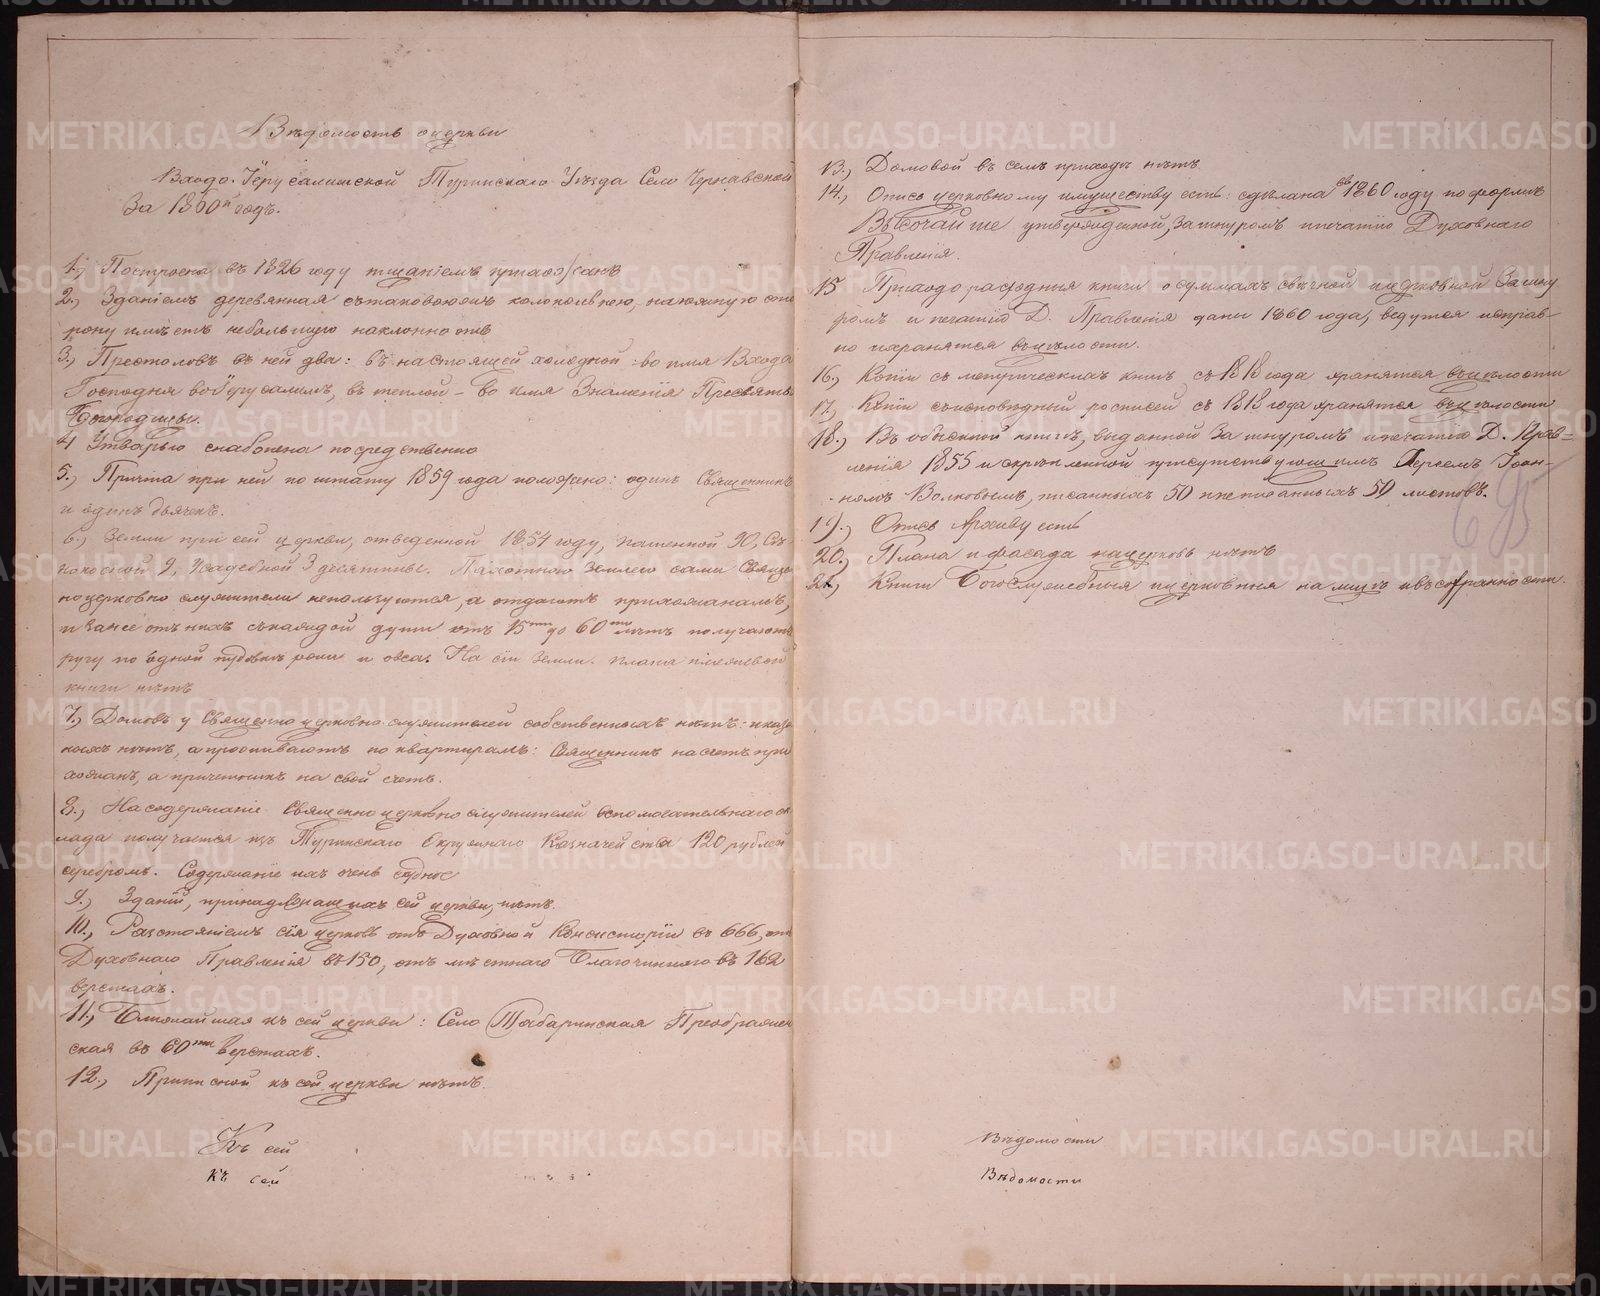 Вѣдомость о церкви
Входо-Іерусалимской Туринскаго Уѣзда Село Чернавской
За 1860й годъ.
1., Построена въ 1826 году тщаніемъ прихожанъ
2., Зданіемъ деревянная съ таковою же колокольнею, на южную сто
рону имѣетъ небольшую наклонность
3., Престоловъ въ ней два: въ настоящей холодной - во имя Входа
Господня во Іерусалимъ, въ теплой - во имя Знаменія Пресвяты
Богородицы.
4 Утварью снабжена посредственно
5., Причта при ней по штату 1859 года положено: одинъ Священникъ
и одинъ дьячекъ.
6., Земли при сей церкви, отведенной 1854 году, пашенной 90, Съ
нокосной 9, Усадебной 3 десятины. Пахотною землею сами Свяще
ноцерковно служители непользуются, а отдаютъ прихожанамъ,
и зансе отъ нихъ съ каждой души отъ 15ти до 60ти лѣтъ получаютъ
ругу по одной пудовкѣ ржи и овса. На сіи земли плана и межевой
книги нѣтъ
7., Домовъ у Священно церковно-служителей собственныхъ нѣтъ и казе
ныхъ нѣтъ, а проживаютъ по квартирамъ: Священникъ на счетъ при
хожанъ, а причетникъ на свой счетъ.
8., На содержаніе Священно церковнослужителей вспомогательнаго ок
лада получается изъ Туринскаго Окружнаго Казначейства 120 рублей
серебромъ. Содержаніе ихъ очень бѣдное
9., Зданій, принадлежащихъ сей церкви, нѣтъ.
10., Разстояніемъ сія церковь отъ Духовной Консисторіи въ 666, отъ
Духовнаго Правленія въ 150, отъ мѣстнаго Благочиннаго въ 162
верстахъ.
11., Ближайшая къ сей церкви: Село Табаринская Преображен
ская въ 60ти верстахъ.
12., Приписной къ сей церкви нѣтъ.
Къ сей
Къ сей
13., Домовой въ семъ приходѣ нѣтъ
14., Опись церковному имуществу есть: сдѣлана въ 1860 году по формѣ
Высочайше утвержденной, за шнуромъ и печатію Духовнаго
Правленія.
15 Приходорасходныя книги о суммахъ свѣчной и церковной За шну
ромъ и печатію Д. Правленія даны 1860 года, ведутся исправ-
но и хранятся въ цѣлости.
16., Копіи съ метрическихъ книгъ съ 1818 года хранятся въ цѣлости
17., Копіи съ исповѣдныхъ росписей съ 1818 года хранятся въ цѣлости
18., Въ обыскной книгѣ, выданной За шнуромъ и печатію Д. Прав=
ленія 1855 и скрѣпленной присутствующимъ Іереемъ Іоан-
номъ Волковымъ, писанныхъ 50 и неписанныхъ 50 листовъ.
19., Опись Архиву есть
20., Плана и фасада на церковь нѣтъ
21., Книги Богослужебныя и церковныя на лицо и въ сохранности.
695
Вѣдомости
Вѣдомости
METRIKI.GASO-URAL.RU